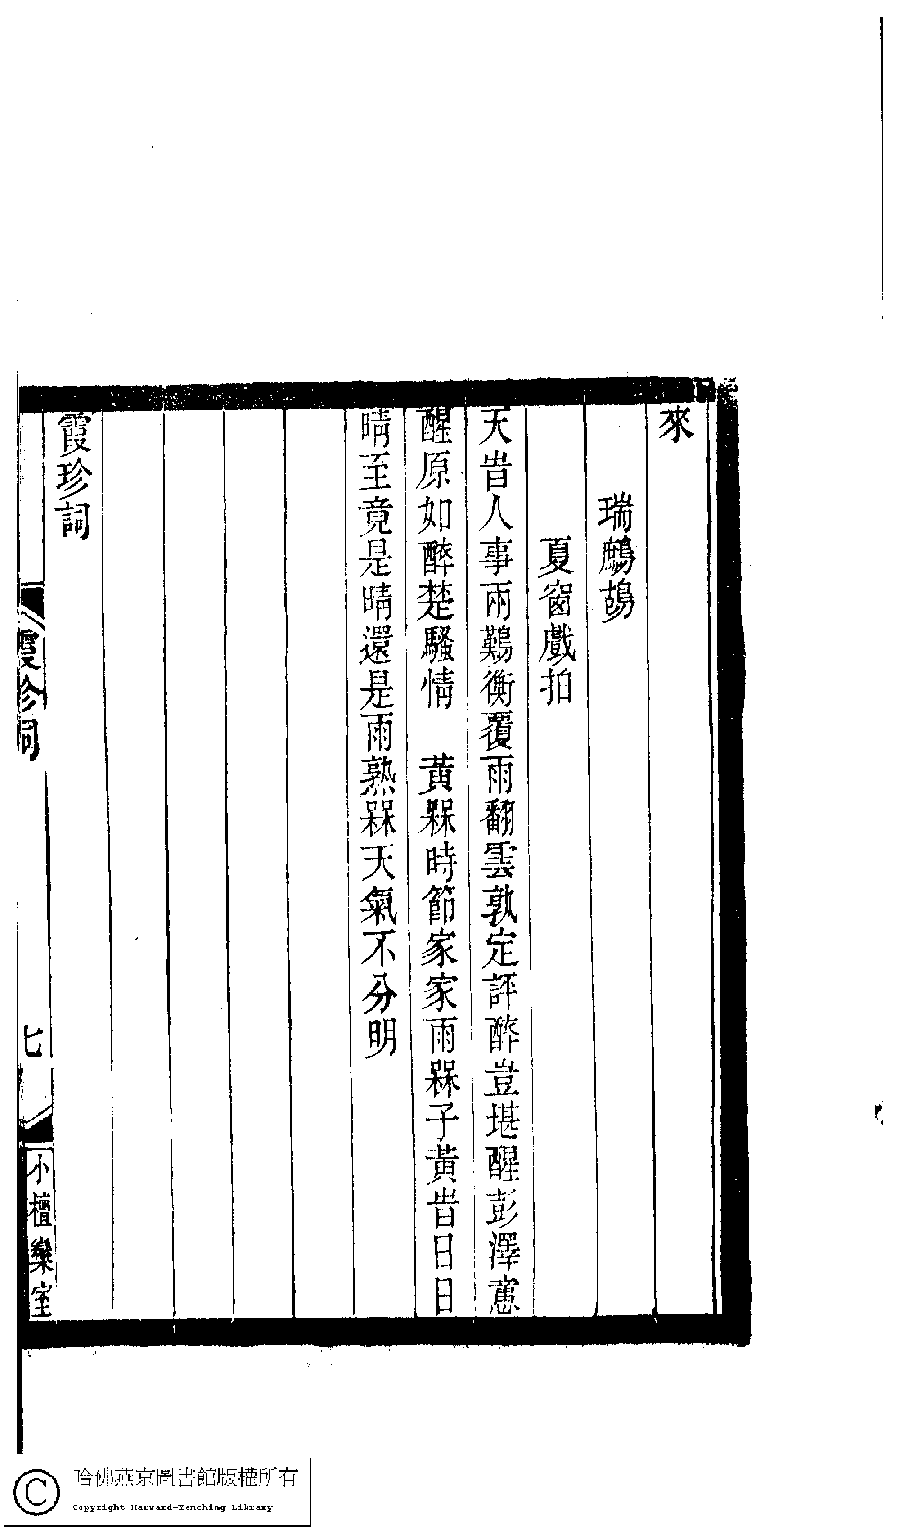 來
瑞鷓鴣
夏窗戲拍
天旹人事兩𪄿衡覆雨翻雲孰定評醉豈堪醒彭澤
醒原如醉楚騷情　黃槑時節家家雨槑子黃旹日日
晴至竟是晴還是雨熟槑天氣不分明
霞珍詞
霞珍詞
七
小檀欒室
哈佛燕京圖書館版權所有
Copyright Harvard-Yenching Library